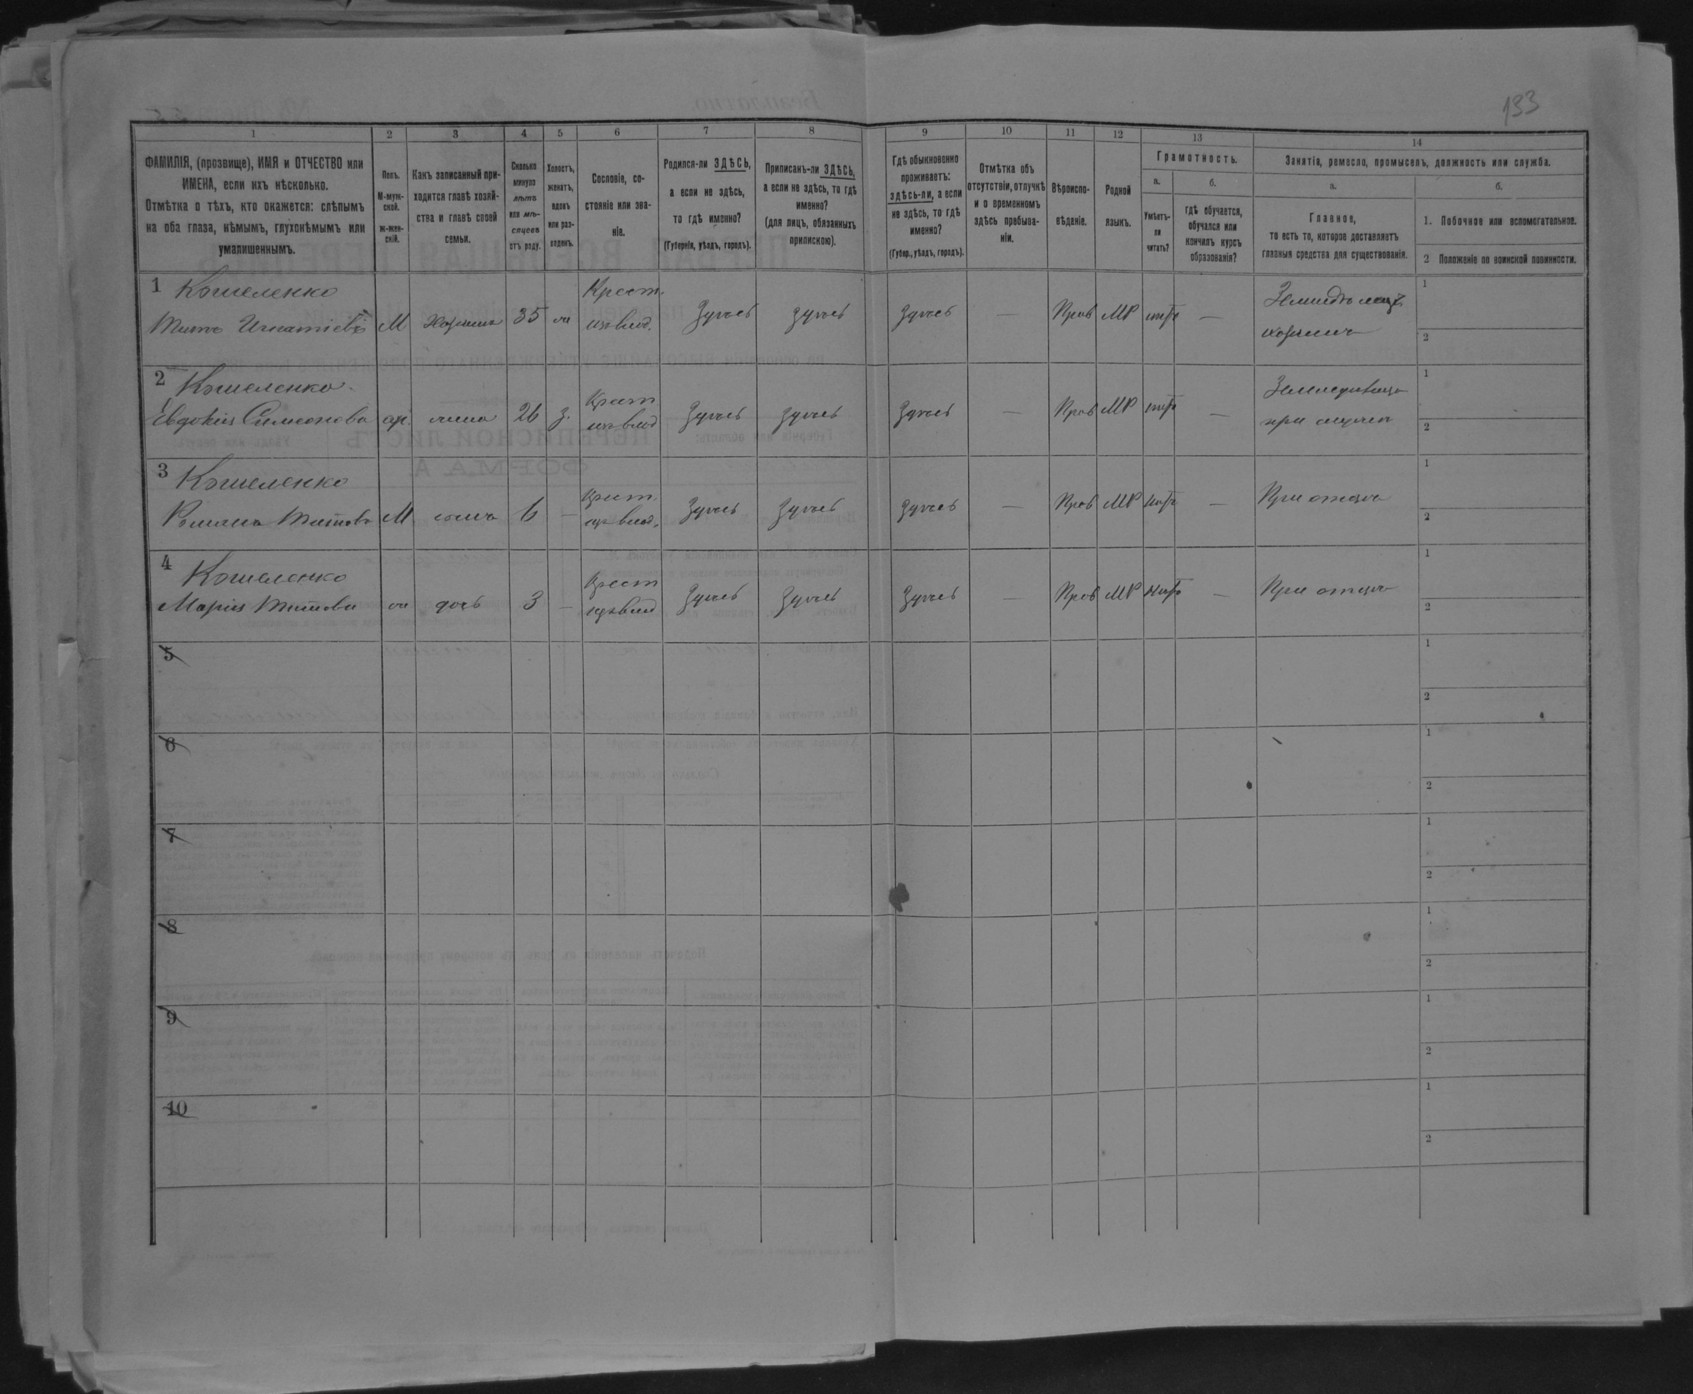 193
1 2 3 4 5 6 7 8 9 10 11 12 13 14
ФАМИЛІЯ, (прозвище), ИМЯ и ОТЧЕСТВО или
ИМЕНА, если ихъ нѣсколько.
Отмѣтка о тѣхъ, кто окажется: слѣпымъ
на оба глаза, нѣмымъ, глухонѣмымъ или
умалишеннымъ.
Полъ.
М-муж-
ской.
ж-жен-
скій.
Какъ записанный при-
ходится главѣ хозяй-
ства и главѣ своей
семьи.
Сколько
минуло
лѣтъ
или мѣ-
сяцевъ
отъ роду.
Холостъ,
женатъ,
вдовъ
или раз-
веденъ.
Сословіе, со-
стояніе или зва-
ніе.
Родился-ли ЗДѢСЬ,
а если не здѣсь,
то гдѣ именно?
(Губернія, уѣздъ, городъ).
Приписанъ-ли ЗДѢСЬ,
а если не здѣсь, то гдѣ
именно?
(для лицъ, обязанныхъ
припискою).
Гдѣ обыкновенно
проживаетъ:
здѣсь-ли, а если
не здѣсь, то гдѣ
именно?
(Губер., уѣздъ, городъ).
Отмѣтка объ
отсутствіи, отлучкѣ
и о временномъ
здѣсь пребыва-
ніи.
Вѣроиспо-
вѣданіе.
Родной
языкъ.
Грамотность.
а.
Умѣетъ-
ли
читать?
б.
гдѣ обучается,
обучался или
кончилъ курсъ
образованія?
Занятія, ремесло, промыселъ, должность или служба.
а.
Главное,
то есть то, которое доставляетъ
главныя средства для существованія.
б.
1. Побочное или вспомогательное.
2 Положеніе по воинской повинности.
1 Кошеленко Крест. 1
Титъ Игнатіевъ М Хозяинъ 35 Здѣсь Здѣсь Здѣсь — Прав МР нѣтъ —
хозяинъ 2
2 Кошеленко Крест 1
Евдокія Симонова жена 26 з. Здѣсь Здѣсь Здѣсь — Прав МР нѣтъ —
при мужѣ 2
3 Кошеленко Крест 1
Романъ Титовъ М сынъ 6 — Здѣсь Здѣсь Здѣсь — Прав МР нѣтъ — При отцѣ
2
4 Кошеленко Крест 1
Марія Титова дочь 3 — Здѣсь Здѣсь Здѣсь — Прав МР нѣтъ — При отцѣ
2
5 1
2
6 1
2
7 1
2
8 1
2
9 1
2
10 1
2